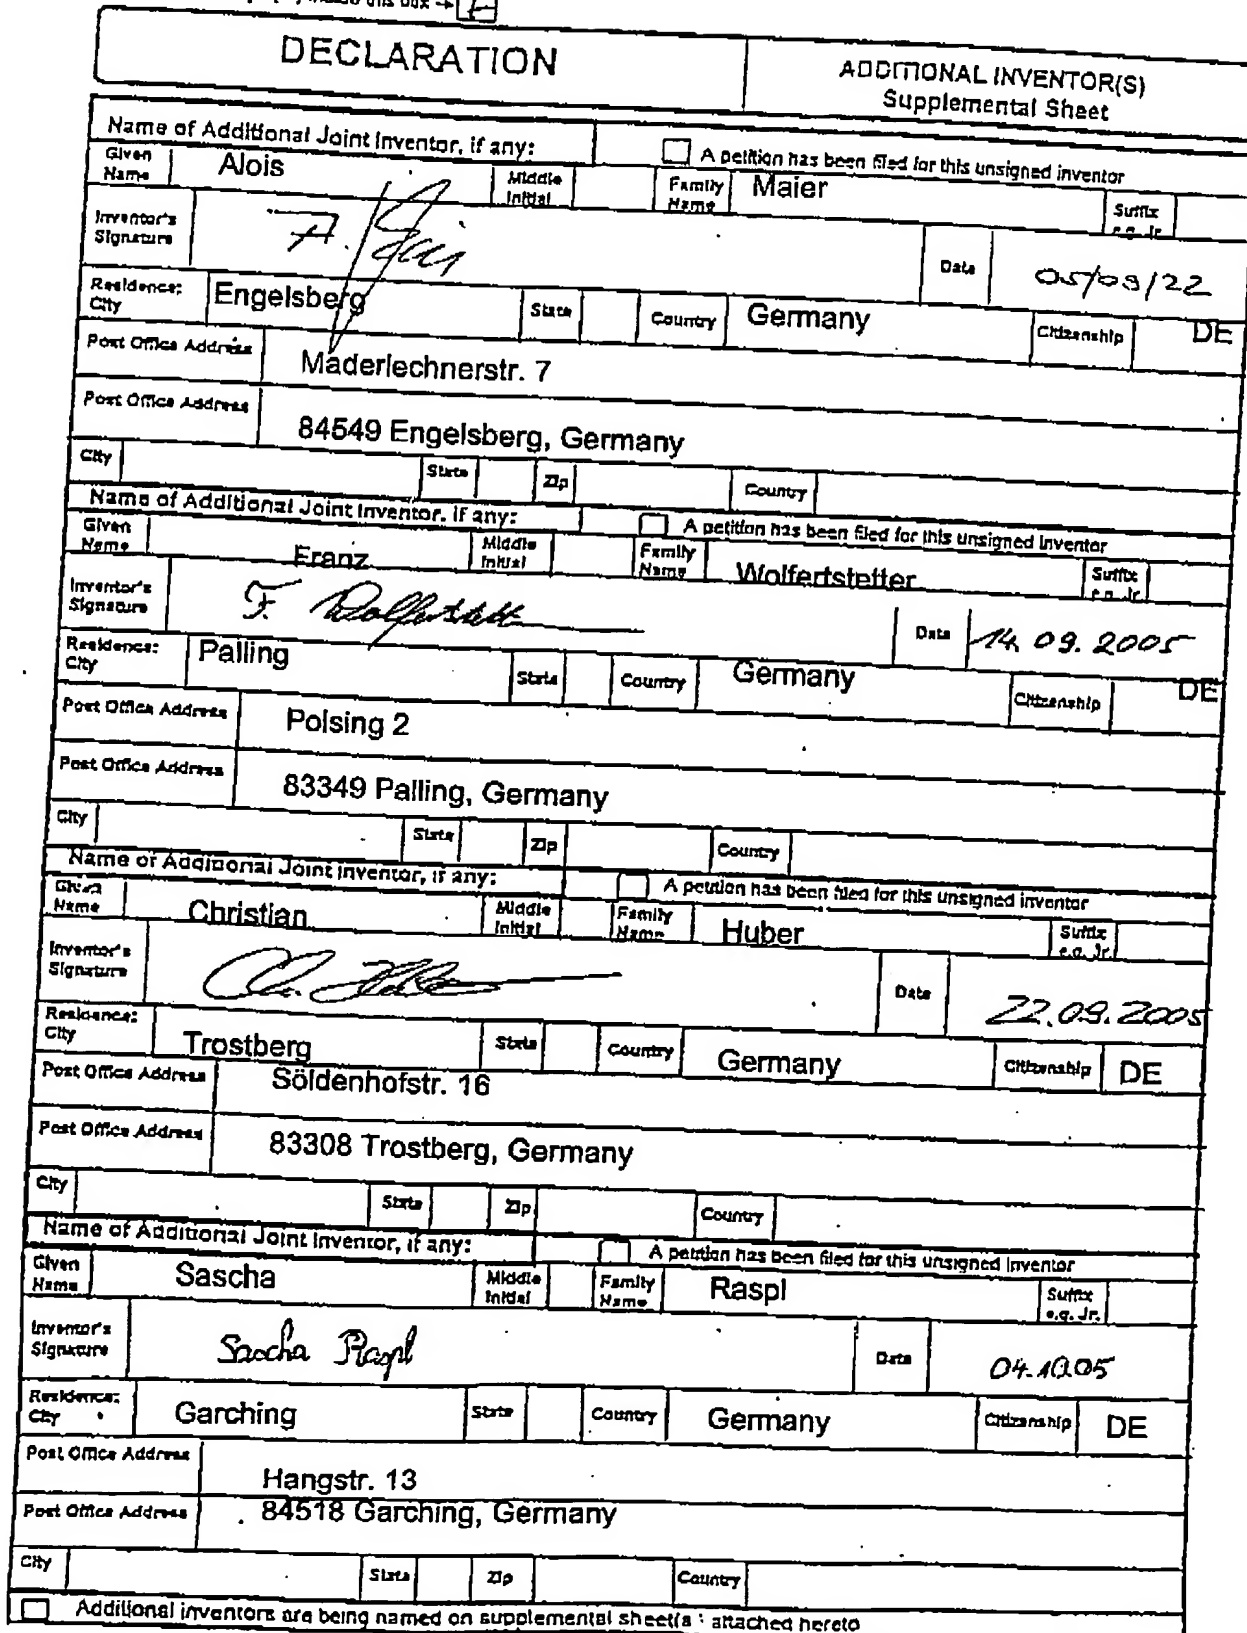 this box →
DECLARATION
ADDITIONAL INVENTOR(S)
Supplemental Sheet
Name of Additional Joint Inventor, if any:
A petition has been filed for this unsigned inventor
Given Name Alois Middle Initial Family Name Maier Suffix e.g. Jr.
Inventor's Signature A. Date 05/09/22
Residence: City Engelsberg State Country Germany Citizenship DE
Post Office Address Maderlechnerstr. 7
Post Office Address 84549 Engelsberg, Germany
City State Zip Country
Name of Additional Joint Inventor, if any:
A petition has been filed for this unsigned inventor
Given Name Franz Middle Initial Family Name Wolfertstetter Suffix e.g. Jr.
Inventor's Signature F. Wolfertstett Date 14.09.2005
Residence: City Palling State Country Germany Citizenship DE
Post Office Address Polsing 2
Post Office Address 83349 Palling, Germany
City State Zip Country
Name of Additional Joint Inventor, if any:
A petition has been filed for this unsigned inventor
Given Name Christian Middle Initial Family Name Huber Suffix e.g. Jr.
Inventor's Signature Ch. Huber Date 22.09.2005
Residence: City Trostberg State Country Germany Citizenship DE
Post Office Address Söldenhofstr. 16
Post Office Address 83308 Trostberg, Germany
City State Zip Country
Name of Additional Joint Inventor, if any:
A petition has been filed for this unsigned inventor
Given Name Sascha Middle Initial Family Name Raspl Suffix e.g. Jr.
Inventor's Signature Sascha Raspl Date 04.10.05
Residence: City Garching State Country Germany Citizenship DE
Post Office Address Hangstr. 13
Post Office Address 84518 Garching, Germany
City State Zip Country
Additional inventors are being named on supplemental sheet(s) attached hereto